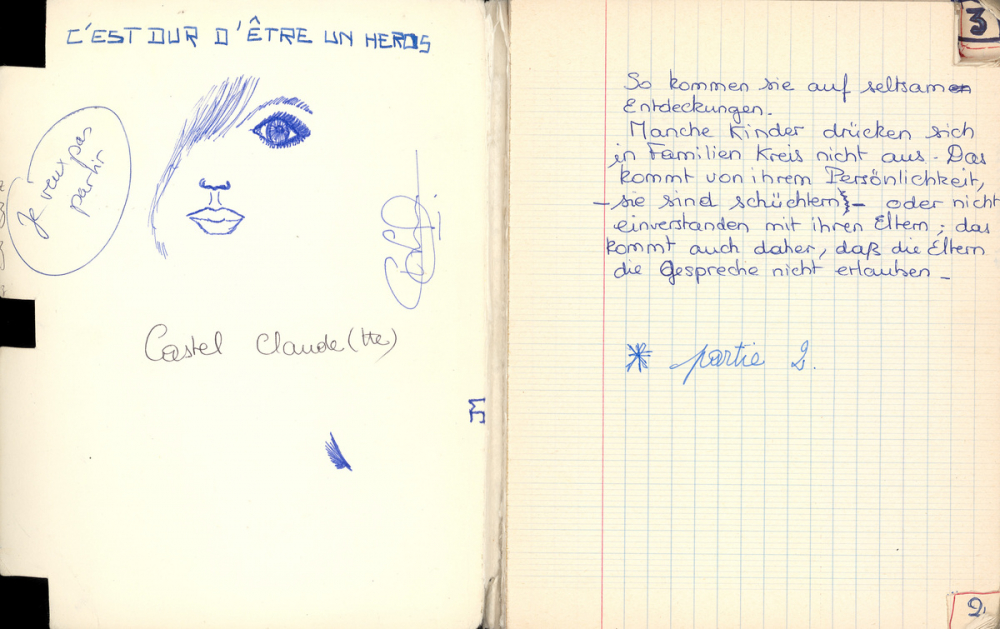 C'EST DUR D'ÊTRE UN HEROS
Je veux pas
partir
Castel Claude(tte)
3
So kommen sie auf seltsamen
Entdeckungen.
Manche Kinder drücken sich
in Familien Kreis nicht aus. Das
kommt von ihrem Persönlichkeit,
– sie sind schüchtern – oder nicht
einverstanden mit ihren Eltern ; das
kommt auch daher, daß die Eltern
die Gespreche nicht erlauben –
* partie 2.
2